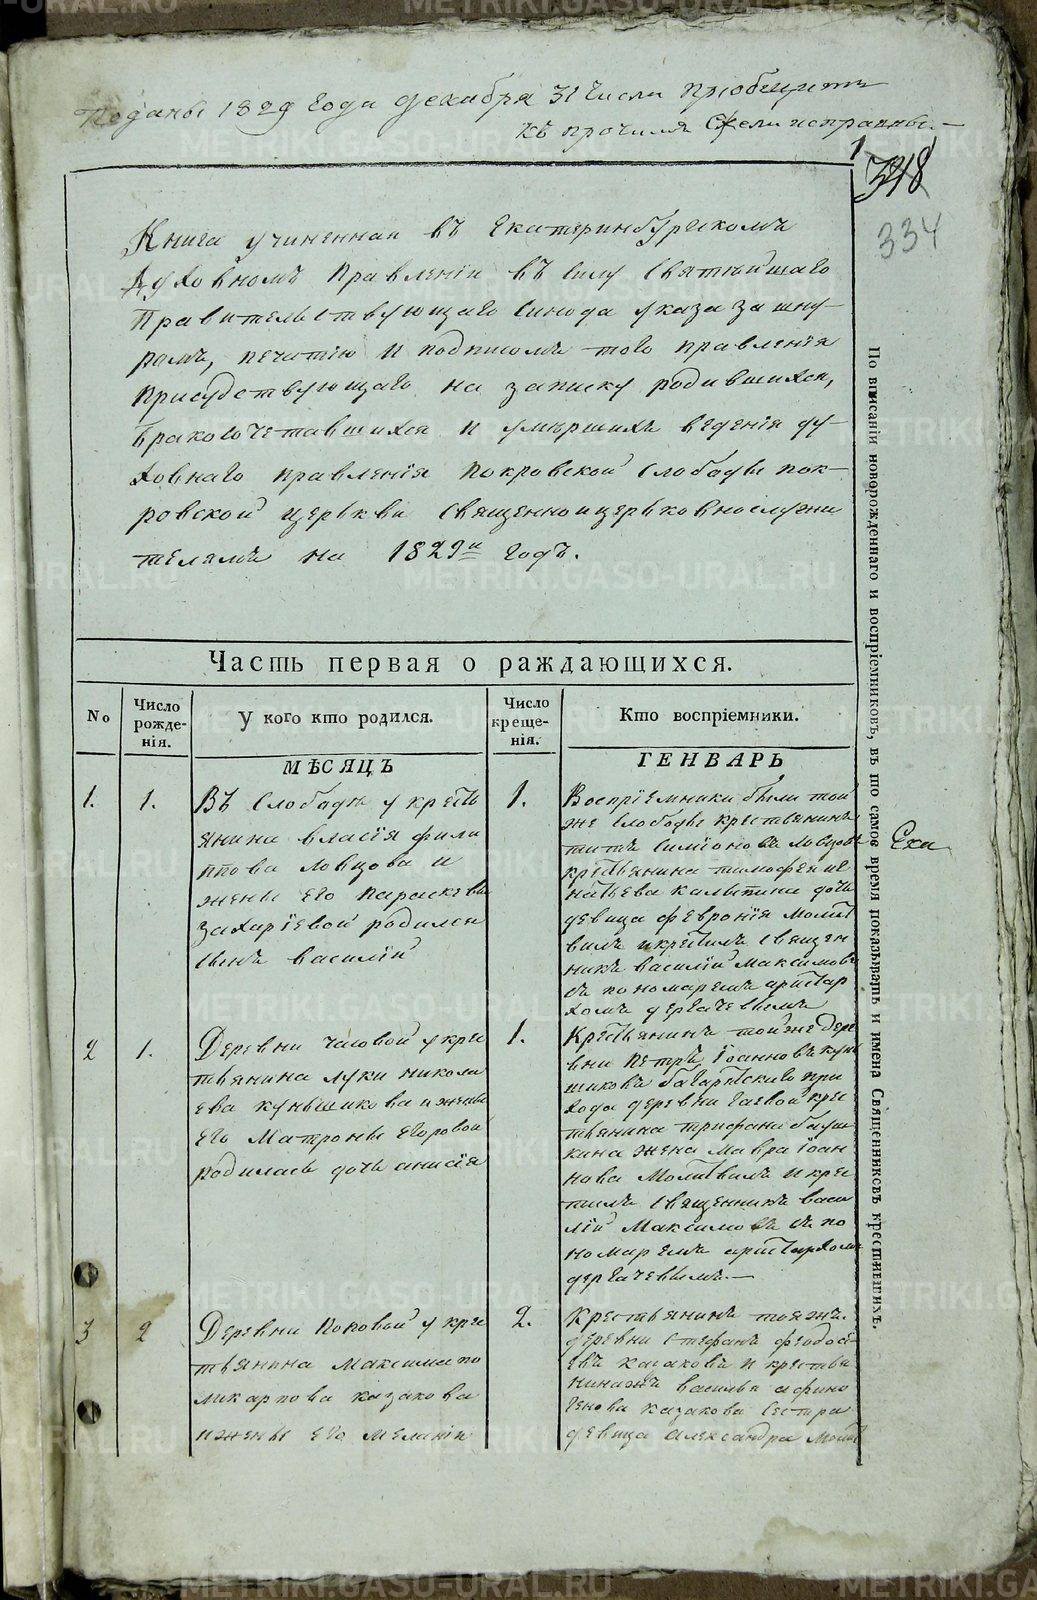 Поданы 1829 года декабря 31 числа приобщить
къ прочимъ
1
318
334
Книга учиненная въ Екатеринбургскомъ
духовномъ правленіи въ силу святѣйшаго
правительствующаго синода указа за шну-
ромъ, печатію и подписомъ того правленія
присудствующаго на записку родившихся,
бракосочетавшихся и умершихъ веденія ду-
ховнаго правленія покровской слободы пок-
ровской церькви священно и церьковнослужи
телямъ на 1829й годъ.
Часть первая о раждающихся.
No
Число
рожде-
нія.
У кого кто родился.
Число
креще-
нія.
Кто воспріемники.
МѢСЯЦЪ
ГЕНВАРЬ
1.
1.
Въ слободѣ у кресть
янина власія фили
пова ловцова и
жены его параскевы
захаріевой родился
сынъ василій
1.
Воспріемники были той
же слободы крестьянинъ
титъ симіоновъ ловцовъ
крестьянина тимофея иг
натьева калинина дочь
девица февронія молит
вилъ и крестилъ священ
никъ василій максимовъ
съ пономаремъ аристар
хомъ дергачевымъ
2
1.
Деревни часовой у кре
стьянина луки никола
ева куньщикова и жены
его матроны егоровой
родилась дочь анисія
1.
Крестьянинъ той же дере
вни петръ іоанновъ кун
щиковъ багаряскаго при
хода деревни гаевой кре
стьянина трифана
жена мавра іоан
нова молитвилъ и кре
стилъ священникъ васи
лій максимовъ съ по
номаремъ аристархомъ
дергачевымъ.—
3
2
Деревни поковой у кре
стьянина максима по
ликарпова казакова
и жены его меланіи
2.
Крестьянинъ тояжъ
деревни стефанъ феодос-
евъ казаковъ и крестья
нинажъ василья афино
генова казакова сестра
девица александра молит
По вписаніи новорожденнаго и воспріемниковъ, въ то самое время показывать и имена Священниковъ крестившихъ.
Ека
METRIKI.GASO-URAL.RU